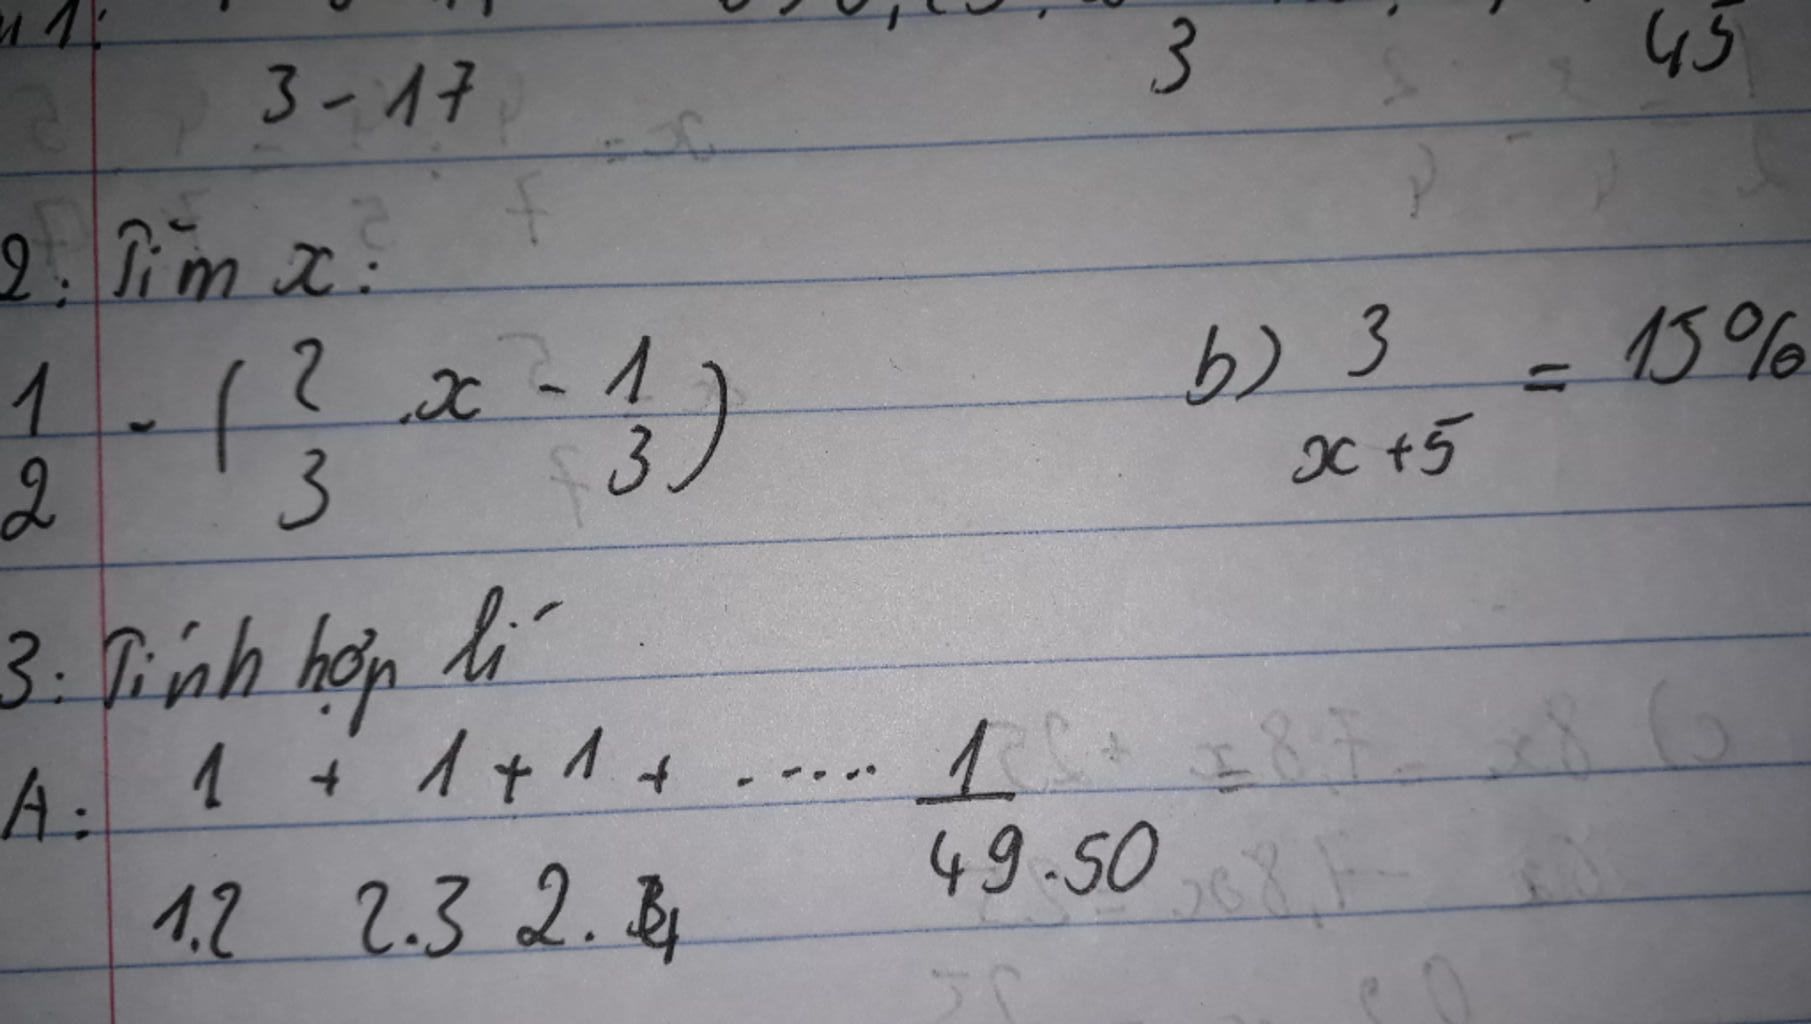 3 - 17 3 45
2: Tìm x:
1/2 - (2/3 .x - 1/3) b) 3/(x+5) = 15%
3: Tính hợp lí
A: 1 + 1 + 1 + ..... 1
1.2 2.3 2. 49.50